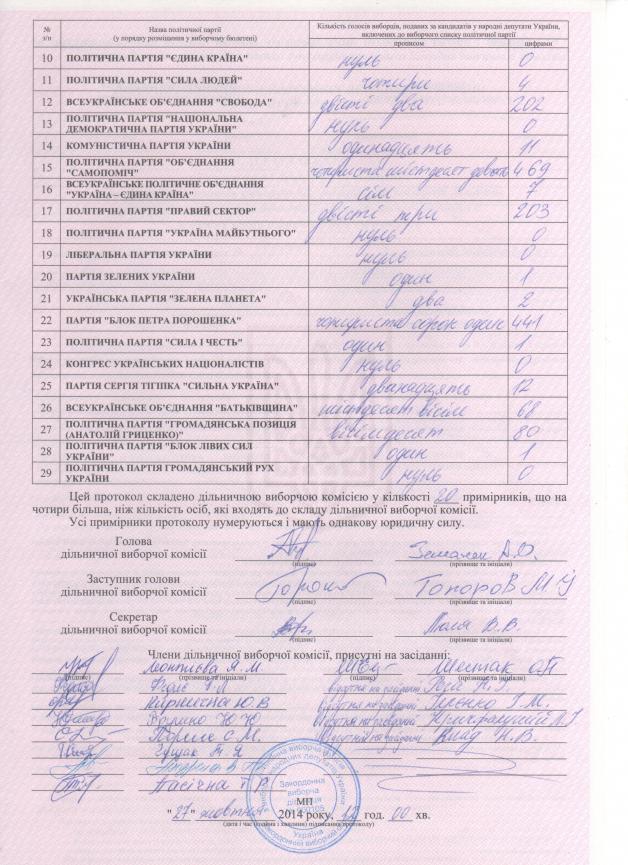 № з/п Назва політичної партії (у порядку розміщення у виборчому бюлетені) Кількість голосів виборців, поданих за кандидатів у народні депутати України, включених до виборчого списку політичної партії
прописом цифрами
10 ПОЛІТИЧНА ПАРТІЯ "ЄДИНА КРАЇНА" нуль 0
11 ПОЛІТИЧНА ПАРТІЯ "СИЛА ЛЮДЕЙ" чотири 4
12 ВСЕУКРАЇНСЬКЕ ОБ'ЄДНАННЯ "СВОБОДА" двісті два 202
13 ПОЛІТИЧНА ПАРТІЯ "НАЦІОНАЛЬНА ДЕМОКРАТИЧНА ПАРТІЯ УКРАЇНИ" нуль 0
14 КОМУНІСТИЧНА ПАРТІЯ УКРАЇНИ одинадцять 11
15 ПОЛІТИЧНА ПАРТІЯ "ОБ'ЄДНАННЯ "САМОПОМІЧ" чотириста шістдесят девять 469
16 ВСЕУКРАЇНСЬКЕ ПОЛІТИЧНЕ ОБ'ЄДНАННЯ "УКРАЇНА – ЄДИНА КРАЇНА" сім 7
17 ПОЛІТИЧНА ПАРТІЯ "ПРАВИЙ СЕКТОР" двісті три 203
18 ПОЛІТИЧНА ПАРТІЯ "УКРАЇНА МАЙБУТНЬОГО" нуль 0
19 ЛІБЕРАЛЬНА ПАРТІЯ УКРАЇНИ нуль 0
20 ПАРТІЯ ЗЕЛЕНИХ УКРАЇНИ один 1
21 УКРАЇНСЬКА ПАРТІЯ "ЗЕЛЕНА ПЛАНЕТА" два 2
22 ПАРТІЯ "БЛОК ПЕТРА ПОРОШЕНКА" чотириста сорок один 441
23 ПОЛІТИЧНА ПАРТІЯ "СИЛА І ЧЕСТЬ" один 1
24 КОНГРЕС УКРАЇНСЬКИХ НАЦІОНАЛІСТІВ нуль 0
25 ПАРТІЯ СЕРГІЯ ТІГІПКА "СИЛЬНА УКРАЇНА" дванадцять 12
26 ВСЕУКРАЇНСЬКЕ ОБ'ЄДНАННЯ "БАТЬКІВЩИНА" шістдесят вісім 68
27 ПОЛІТИЧНА ПАРТІЯ "ГРОМАДЯНСЬКА ПОЗИЦІЯ (АНАТОЛІЙ ГРИЦЕНКО)" вісімдесят 80
28 ПОЛІТИЧНА ПАРТІЯ "БЛОК ЛІВИХ СИЛ УКРАЇНИ" один 1
29 ПОЛІТИЧНА ПАРТІЯ ГРОМАДЯНСЬКИЙ РУХ УКРАЇНИ нуль 0
Цей протокол складено дільничною виборчою комісією у кількості 20 примірників, що на
чотири більша, ніж кількість осіб, які входять до складу дільничної виборчої комісії.
Усі примірники протоколу нумеруються і мають однакову юридичну силу.
Голова
дільничної виборчої комісії А.О.
(підпис) (прізвище та ініціали)
Заступник голови
дільничної виборчої комісії Топоров М
(підпис) (прізвище та ініціали)
Секретар
дільничної виборчої комісії В.В.
(підпис) (прізвище та ініціали)
Члени дільничної виборчої комісії, присутні на засіданні:
Леонтієва Я.М. Шестак
(підпис) (прізвище та ініціали) (підпис) (прізвище та ініціали)
Ю.В
Пасічна Т
Закордонна
виборча
дільниця
Україна
МП
"27" жовтня 2014 року, 12 год. 00 хв.
(дата і час (година і хвилини) підписання протоколу)